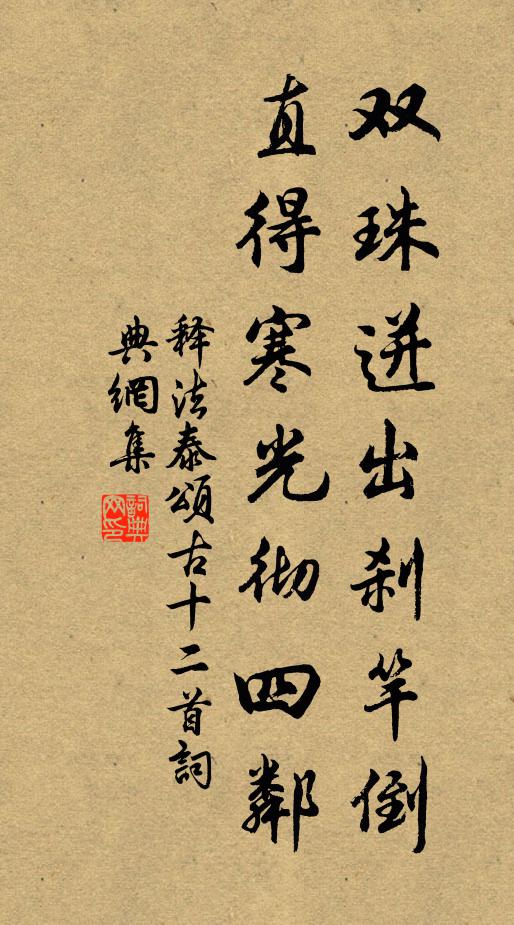 双珠迸出刹竿倒
直得寒光彻四鄰
释法泰頌古十二首詞
典網集
詞典
网印